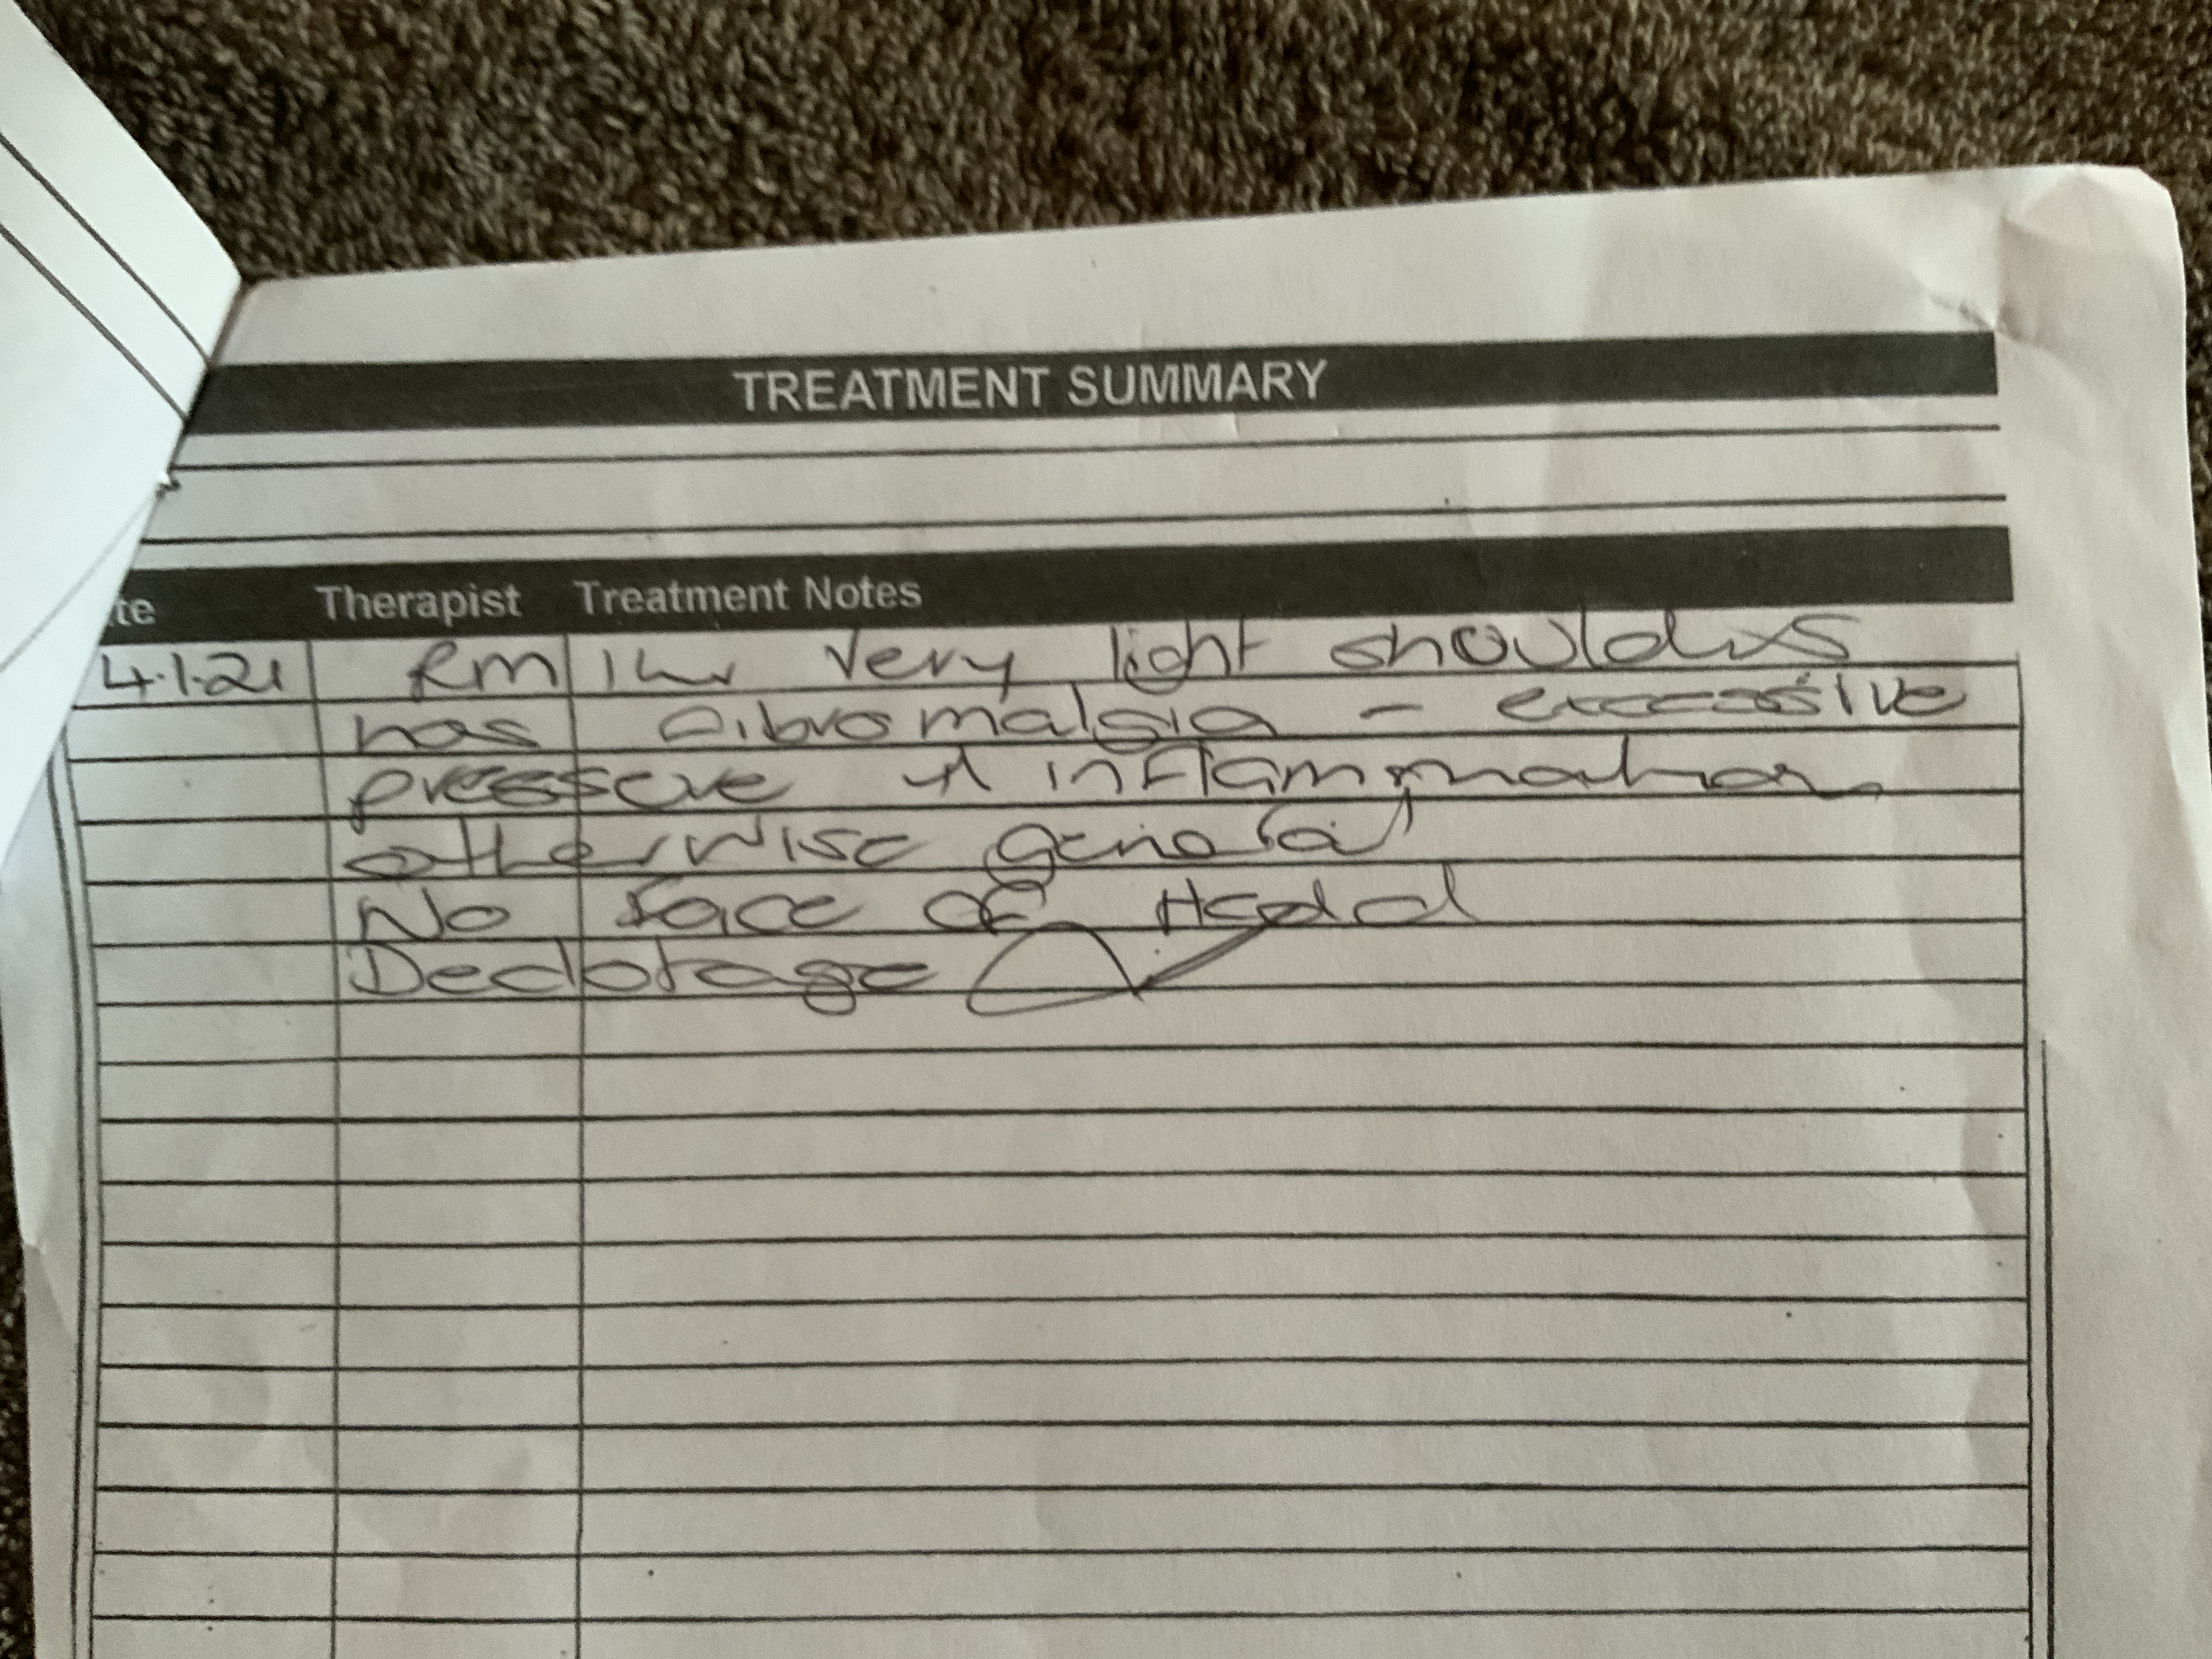 TREATMENT SUMMARY
te Therapist Treatment Notes
4.1.21 Rm 1hr very light shoulders
has fibromalgia - excessive
pressure inflammation
otherwise general
No face or Head
Declotage